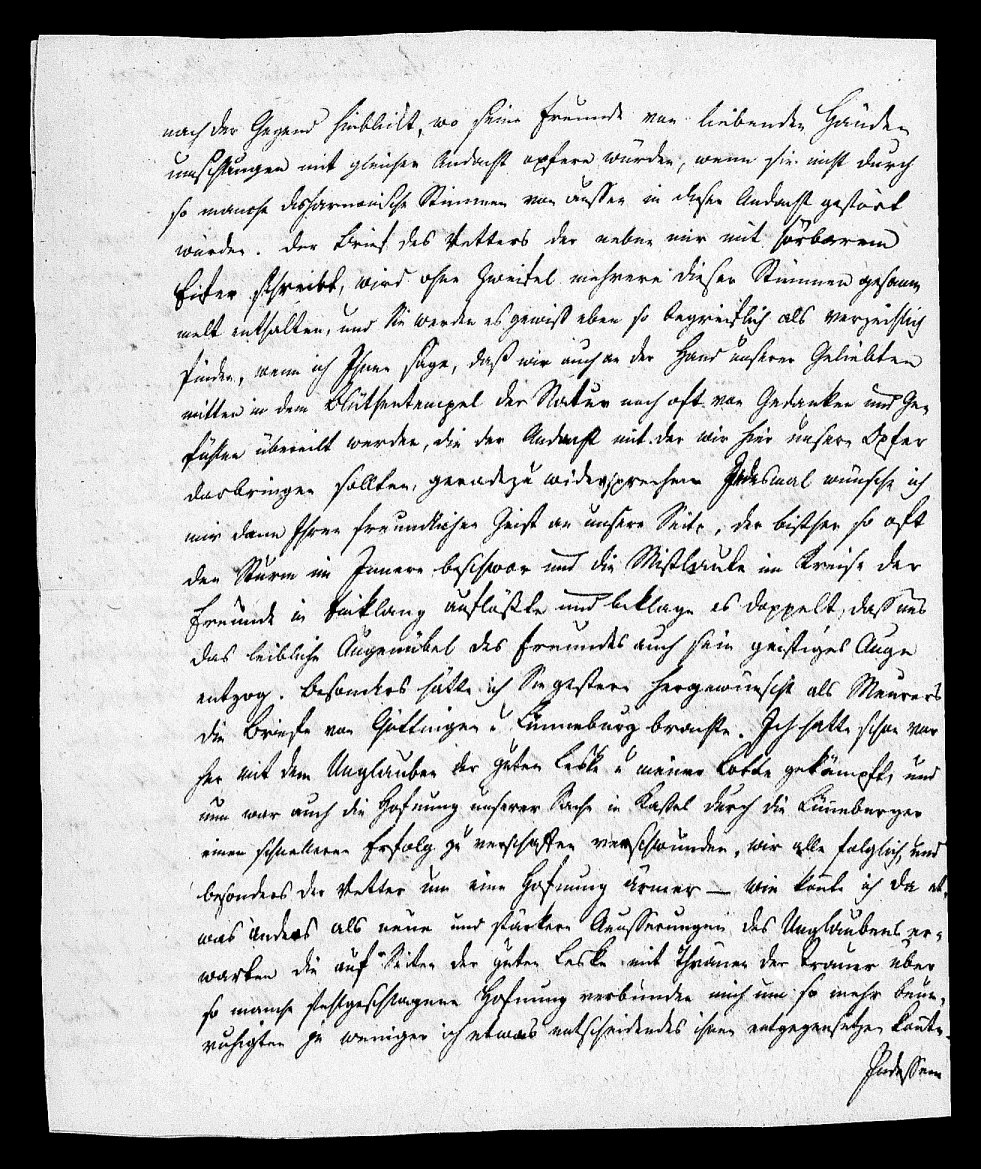 nach der Gegend hinblickt, wo seine Freunde von liebenden Händen
umschlungen mit gleicher Andacht opfern würden, wenn sie nicht durch
so manche disharmonische Stimmen von aussen in dieser Andacht gestört
würden. Der Brief des Vetters der neben mir mit hörbarem
Eifer schreibt, wird ohne Zweifel mehrere dieser Stimmen gesam
melt enthalten, und Sie werden es gewiß eben so begreiflich als verzeihlich
finden, wenn ich Ihnen sage, daß wir auch an der Hand unserer Geliebten
mitten in dem Blüthentempel der Natur noch oft von Gedanken und Ge-
fühlen übereilt werden, die der Andacht mit der wir hier unsere Opfer
darbringen sollten, geradezu widersprechen. Jedesmal wünsche ich
mir dann Ihren freundlichen Geist an unsere Seite, der bisher so oft
den Sturm im Innern beschwor und die Mißlaute im Kreise der
Freunde in Einklang auflößte und beklage es doppelt, dass uns
das leibliche Augenübel des Freundes auch sein geistiges Auge
entzog. Besonders hätte ich Sie gestern hergewünscht als Meurers
die Briefe von Göttingen u Lüneburg brachte. Ich hatte schon vor
her mit dem Unglauben der guten Leske u meiner Lotte gekämpft, und
nun war auch die Hofnung unserer Sache in Kassel durch die Lüneburger
einen schnelleren Erfolg zu verschaffen verschwunden, wir alle folglich, und
besonders der Vetter um eine Hofnung ärmer – wie konte ich da et
was anders als neue und stärkere Äusserungen des Unglaubens er-
warten die auf Seiten der guten Leske mit Thränen der Trauer über
so manche fehlgeschlagene Hofnung verbunden mich um so mehr beun-
ruhigten je weniger ich etwas entscheidendes ihnen entgegensetzen konte.
Indessen